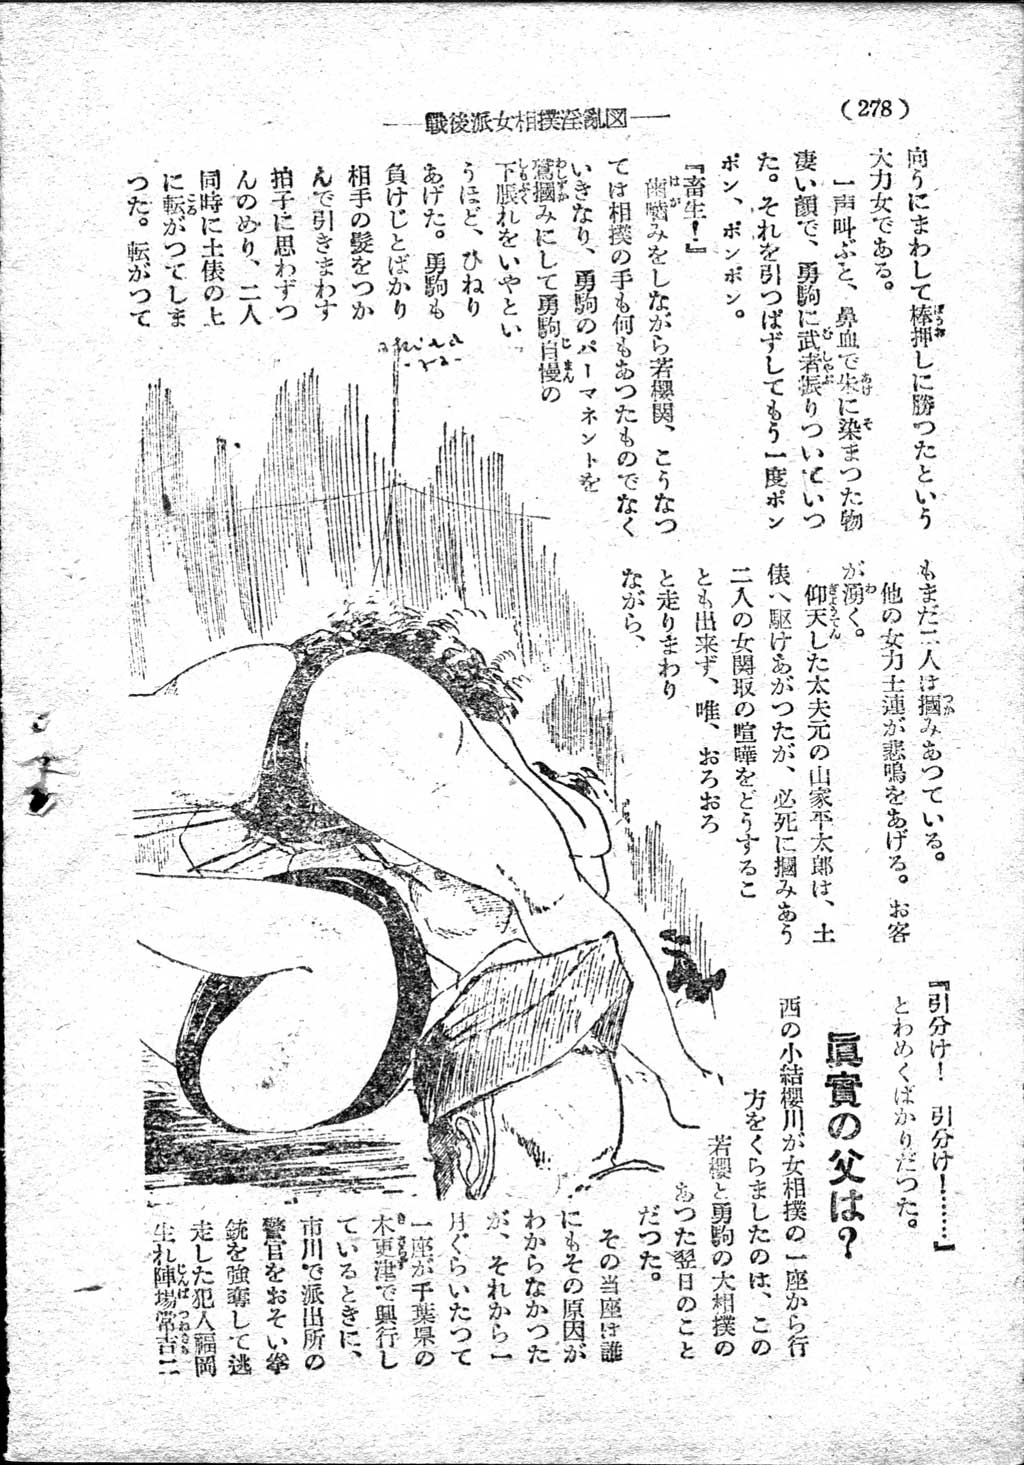 (278)
戰後派女相撲淫亂図
向うにまわして棒押しに勝つたという
大力女である。
一声叫ぶと、鼻血で朱に染まつた物
凄い顔で、勇駒に武者振りついていつ
た。それを引つぱずしてもう一度ポン
ポン、ポンポン。
『畜生！』
歯噛みをしながら若櫻関、こうなつ
ては相撲の手も何もあつたものでなく
いきなり、勇駒のパーマネントを
鷲摑みにして勇駒自慢の
下脹れをいやとい
うほど、ひねり
あげた。勇駒も
負けじとばかり
相手の髪をつか
んで引きまわす
拍子に思わずつ
んのめり、二人
同時に土俵の上
に転がつてしま
つた。転がつて
もまだ二人は摑みあつている。
他の女力士連が悲鳴をあげる。お客
が湧く。
仰天した太夫元の山家平太郎は、土
俵へ駆けあがつたが、必死に摑みあう
二人の女関取の喧嘩をどうするこ
とも出来ず、唯、おろおろ
と走りまわり
ながら、
『引分け！　引分け！……』
とわめくばかりだつた。
眞實の父は？
西の小結櫻川が女相撲の一座から行
方をくらましたのは、この
若櫻と勇駒の大相撲の
あつた翌日のこと
だつた。
その当座は誰
にもその原因が
わからなかつた
が、それから一
月ぐらいたつて
一座が千葉県の
木更津で興行し
ているときに、
市川で派出所の
警官をおそい拳
銃を強奪して逃
走した犯人福岡
生れ陣場常吉二